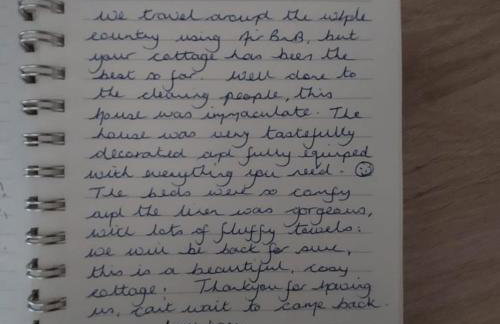 we travel around the whole
country using Air BnB, but
your cottage has been the
best so far well done to
the cleaning people, this
house was immaculate. The
house was very tastefully
decorated and fully equiped
with everything you need. ☺
The beds were so comfy
and the linen was gorgeous,
with lots of fluffy towels:
we will be back for sure,
this is a beautiful, cosy
cottage! Thankyou for having
us, can't wait to come back.